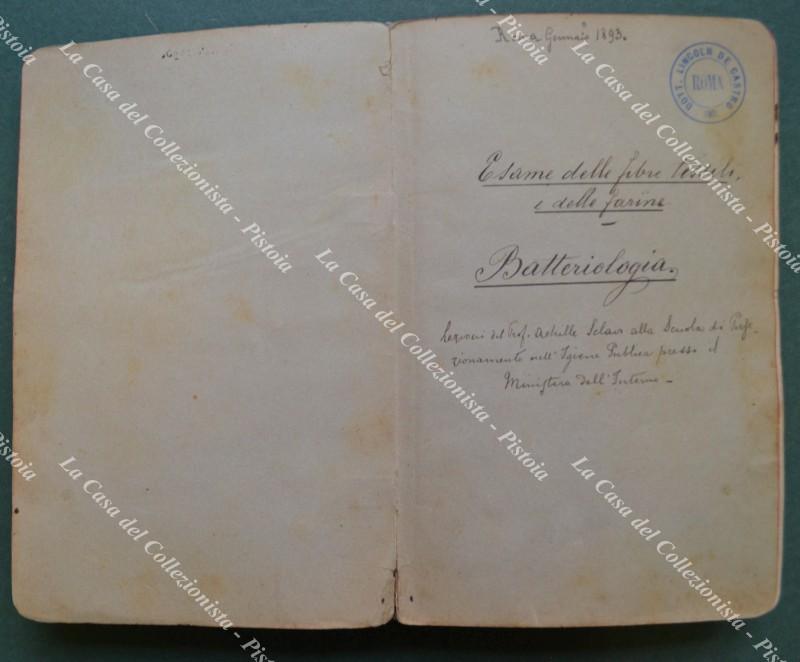 Roma Gennaio 1893.
DOTT. LINCOLN DE CASTRO
ROMA
Esame delle fibre tessili,
e delle farine
Batteriologia.
Lezioni del Prof. Achille Sclavo alla Scuola di Perfe-
zionamento nell'Igiene Pubblica presso il
Ministero dell'Interno -
La Casa del Collezionista - Pistoia
La Casa del Collezionista - Pistoia
La Casa del Collezionista - Pistoia
La Casa del Collezionista - Pistoia
La Casa del Collezionista - Pistoia
La Casa del Collezionista - Pistoia
La Casa del Collezionista - Pistoia